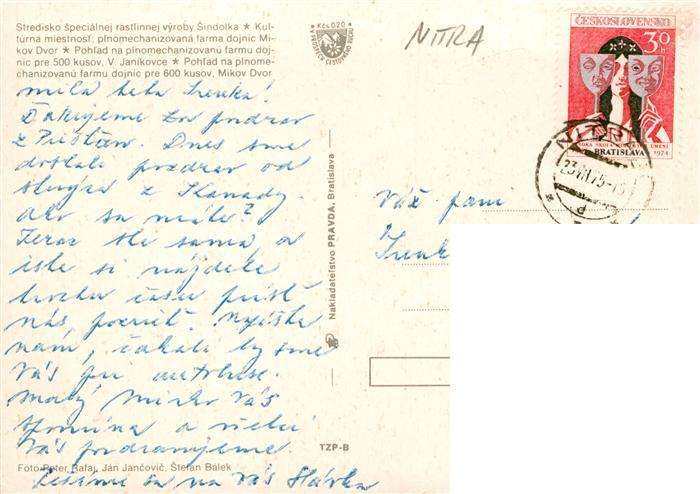 Stredisko špeciálnej rastlinnej výroby Šindolka ★ Kul-
túrna miestnosť, plnomechanizovaná farma dojníc Mi-
kov Dvor ★ Pohľad na plnomechanizovanú farmu doj-
níc pre 500 kusov, V. Janíkovce ★ Pohľad na plnome-
chanizovanú farmu dojníc pre 600 kusov, Mikov Dvor
Kčs 020
NITRA
ČESKOSLOVENSKO
30
BRATISLAVA 1974
NITRA
milá teta Irenka!
Ďakujeme za pozdrav
z Piešťan. Dnes sme
dostali pozdrav od
z Kanady.
Ako sa máte?
Teraz ste sama, a
iste si nájdete
trochu času prísť
nás pozrieť. Napíšte
nám, čakali by sme
Vás pri autobuse.
malý Mirko Vás
spomína a všetci
Vás pozdravujeme.
Tešíme sa na Vás Slávka
Váž. pani
Nakladateľstvo PRAVDA, Bratislava
TZP-B
Foto Peter Rafaj, Ján Jančovič, Štefan Bálek